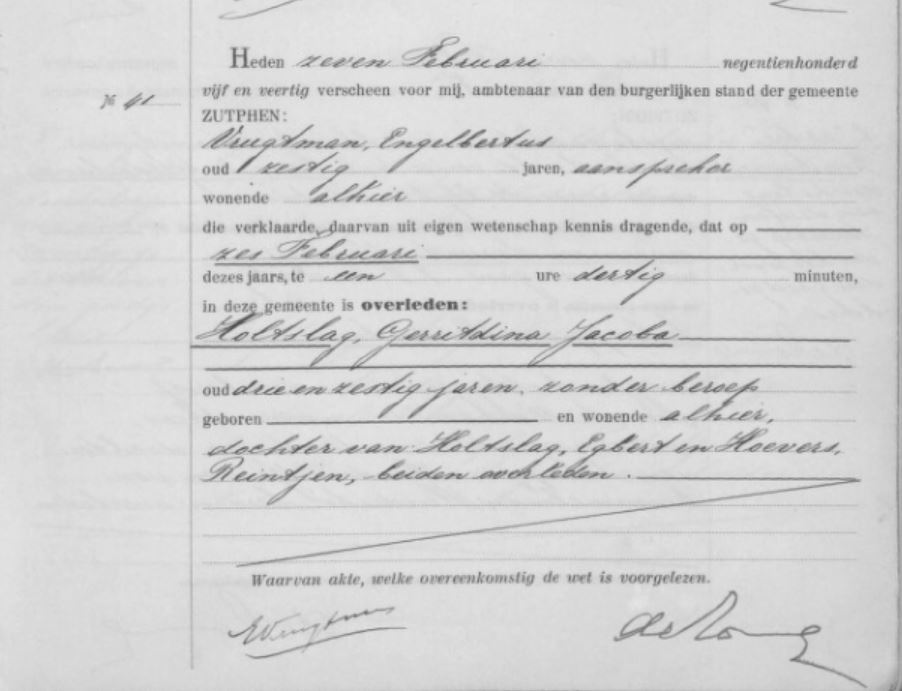 Heden zeven Februari negentienhonderd
№ 41 vijf en veertig verscheen voor mij, ambtenaar van den burgerlijken stand der gemeente
ZUTPHEN:
Vrugtman, Engelbertus
oud zestig jaren, aanspreker
wonende alhier
die verklaarde, daarvan uit eigen wetenschap kennis dragende, dat op
zes Februari
dezes jaars, te een ure dertig minuten,
in deze gemeente is overleden:
Holtslag, Gerritdina Jacoba
oud drie en zestig jaren, zonder beroep
geboren en wonende alhier,
dochter van Holtslag, Egbert en Hoevers,
Reintjen, beiden overleden.
Waarvan akte, welke overeenkomstig de wet is voorgelezen.
EVrugtman